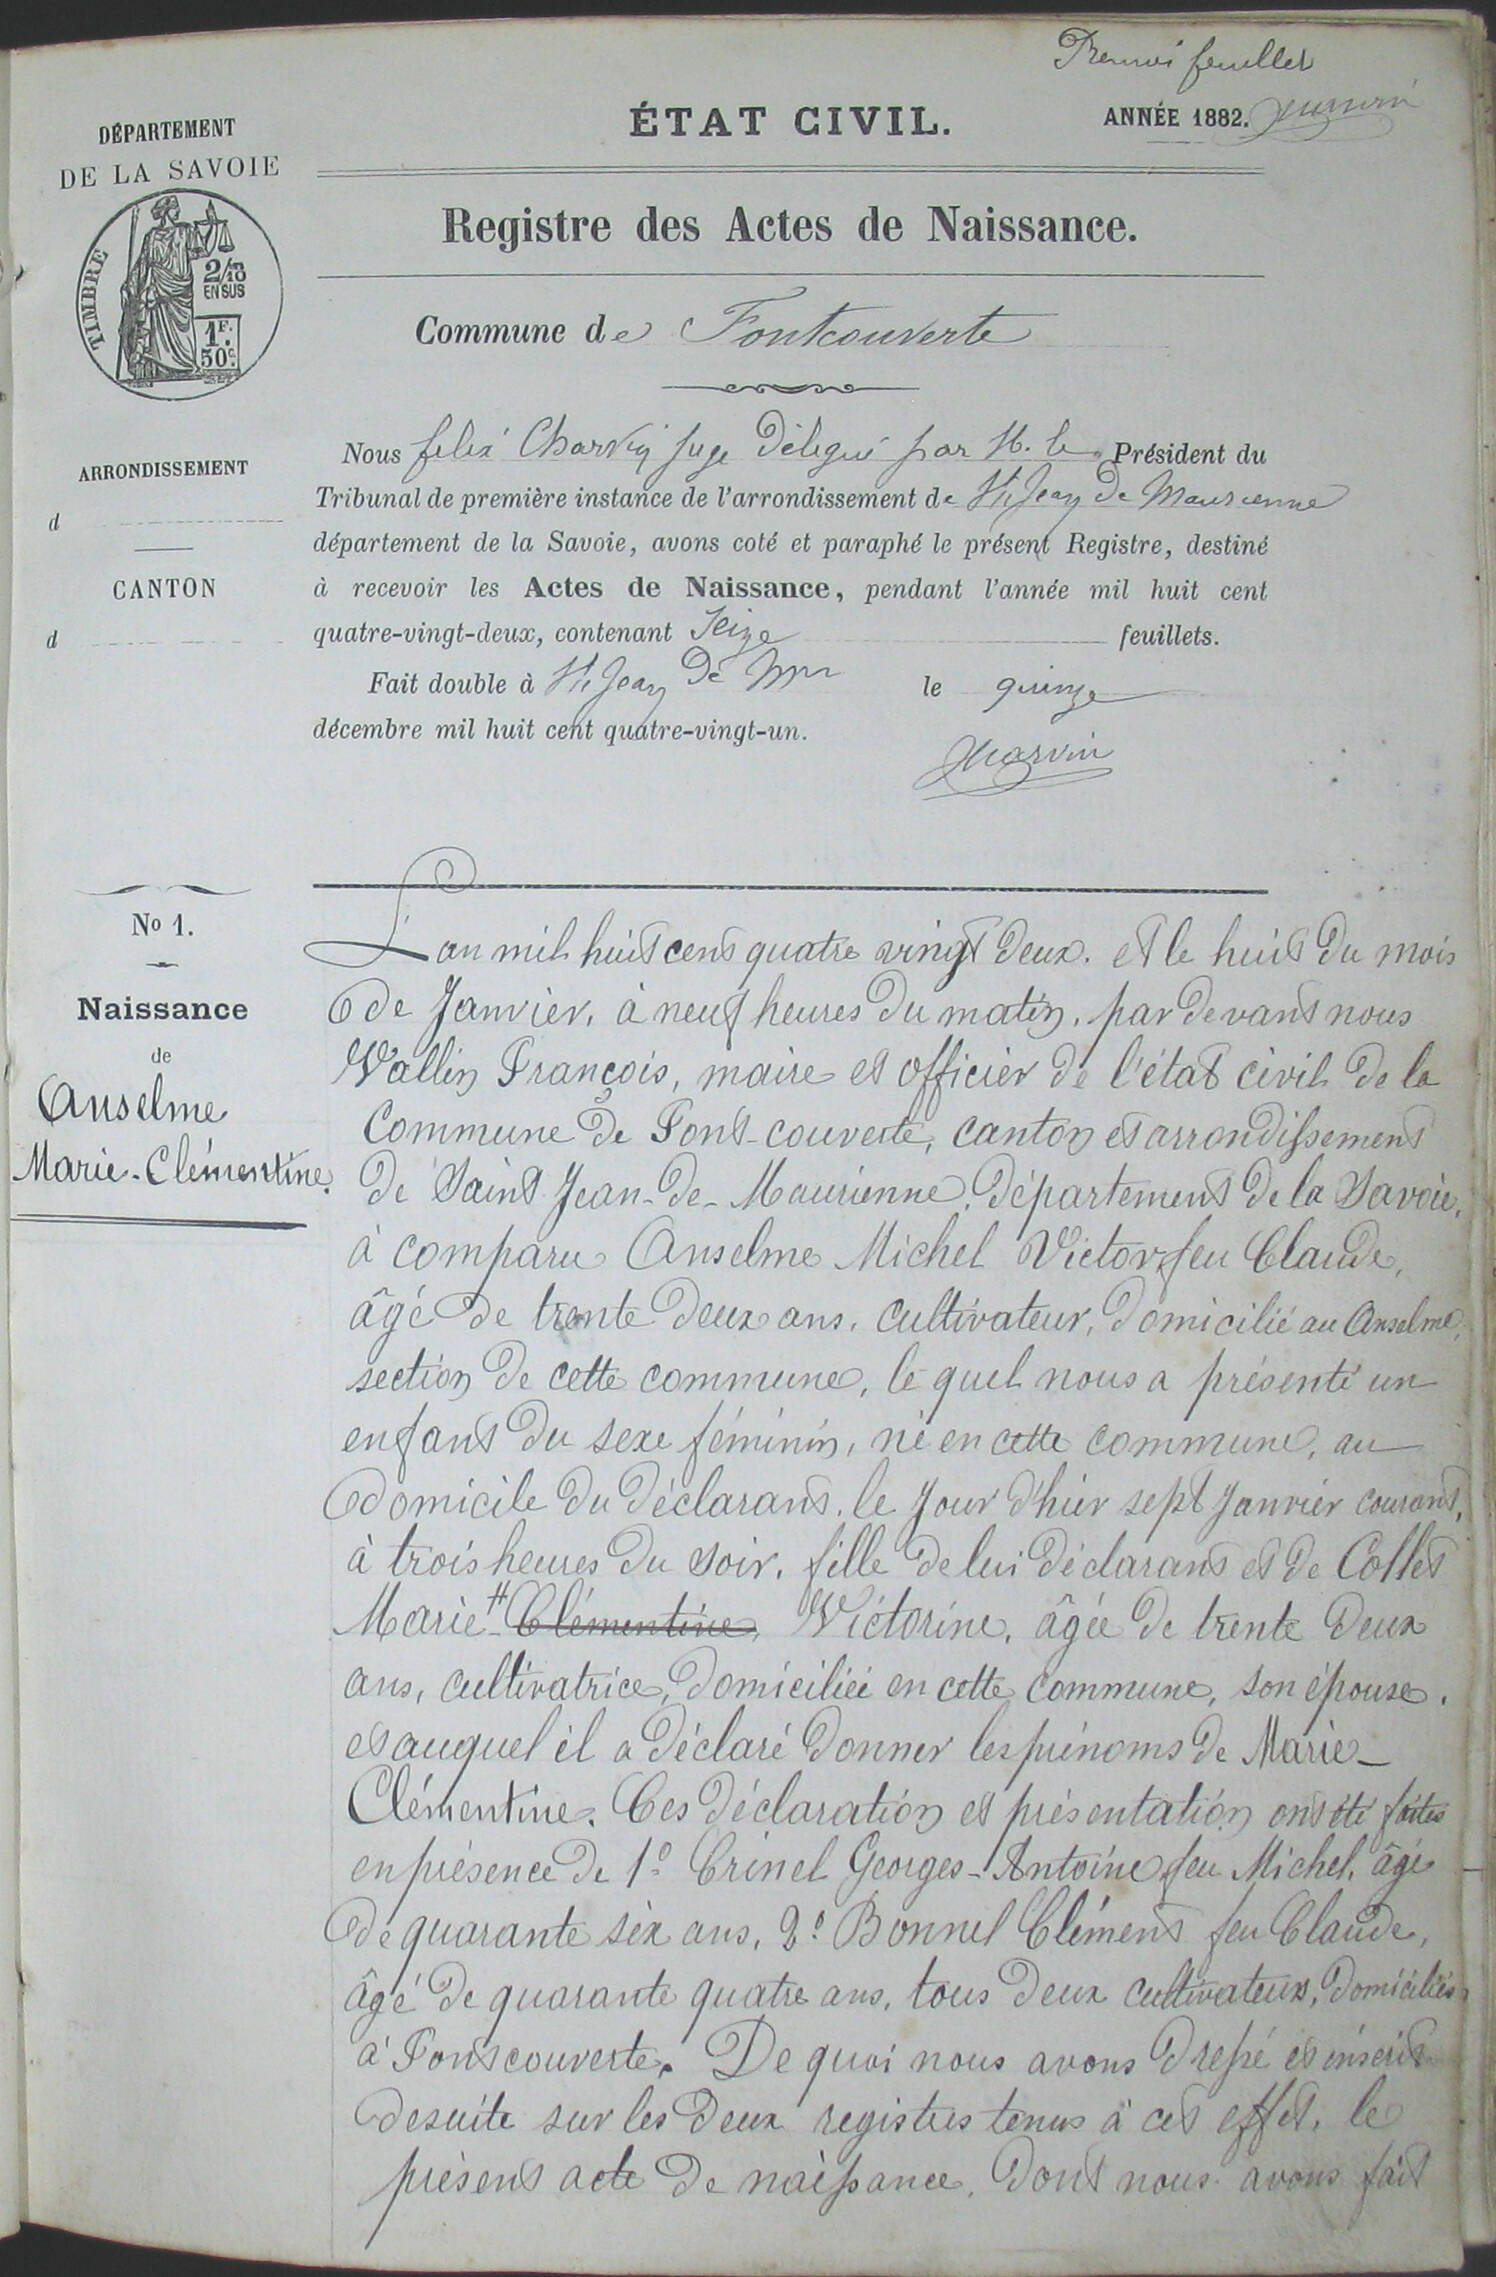 Premier feuillet
ÉTAT CIVIL.
ANNÉE 1882.
DÉPARTEMENT
DE LA SAVOIE
TIMBRE
2/10
EN SUS
1F.
50c.
Registre des Actes de Naissance.
Commune de Fontcouverte
ARRONDISSEMENT
d
CANTON
d
Nous felix Charvin juge délégué par M. le Président du
Tribunal de première instance de l'arrondissement de St Jean de Maurienne
département de la Savoie, avons coté et paraphé le présent Registre, destiné
à recevoir les Actes de Naissance, pendant l'année mil huit cent
quatre-vingt-deux, contenant Seize feuillets.
Fait double à St Jean de Mne le quinze
décembre mil huit cent quatre-vingt-un.
Charvin
No 1.
Naissance
de
Anselme
Marie-Clémentine.
L'an mil huit cent quatre vingt deux. et le huit du mois
de Janvier, à neuf heures du matin, par devant nous
Vallin François, maire et officier de l'état civil de la
Commune de Font-couverte, canton et arrondissement
de Saint Jean-de-Maurienne, département de la Savoie,
à comparu Anselme Michel Victor, feu Claude,
âgé de trente deux ans, cultivateur, domicilié au Anselme,
section de cette commune, le quel nous a présenté un
enfant du sexe féminin, né en cette commune, au
domicile du déclarant, le jour d'hier sept Janvier courant,
à trois heures du soir, fille de lui déclarant et de Collet
Marie # Clémentine, Victorine, âgée de trente deux
ans, cultivatrice, domiciliée en cette commune, son épouse.
et auquel il a déclaré donner les prénoms de Marie-
Clémentine. Ces déclaration et présentation ont été faites
en présence de 1° Crinel Georges-Antoine, feu Michel, âgé
de quarante six ans, 2° Bonnel Clément feu Claude,
âgé de quarante quatre ans, tous deux cultivateurs, domiciliés
à Fontcouverte. De quoi nous avons dressé et inscrit
desuite sur les deux registres tenus à cet effet, le
présent acte de naissance, dont nous avons fait